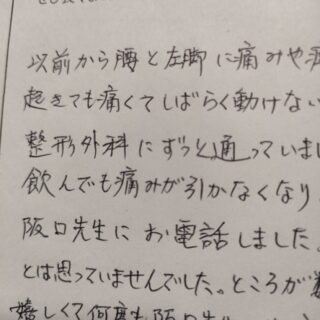 以前から腰と左脚に痛みや
起きても痛くてしばらく動けない
整形外科にずっと通っていまし
飲んでも痛みが引かなくなり
阪口先生にお電話しました。
とは思っていませんでした。ところが
嬉しくて何度も阪口先